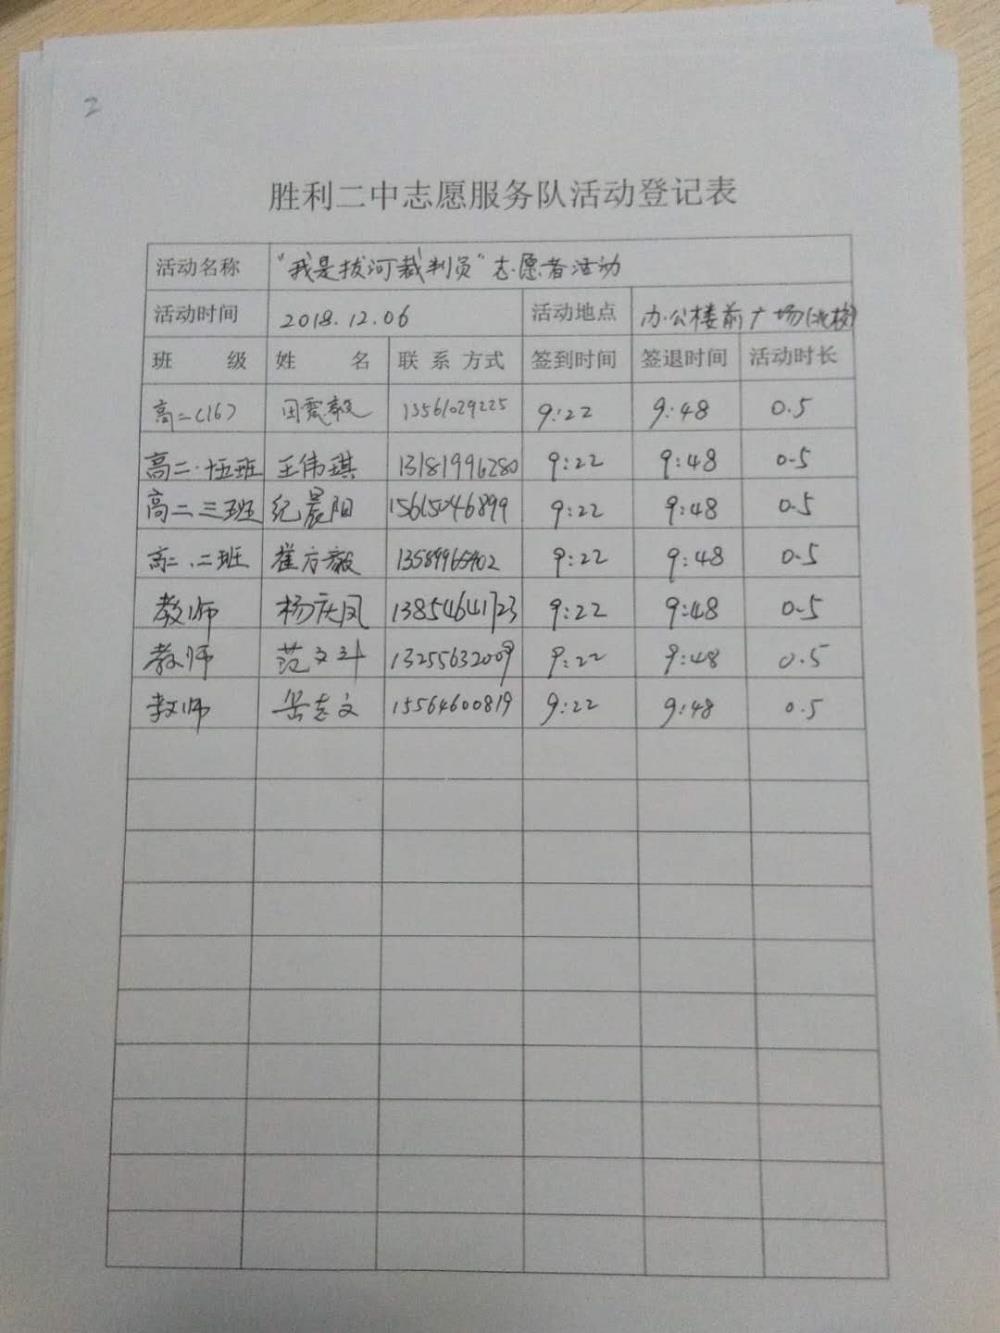 2
胜利二中志愿服务队活动登记表
活动名称 "我是拔河裁判员"志愿者活动
活动时间 2018.12.06 活动地点 办公楼前广场(北校)
班 级 姓 名 联 系 方式 签到时间 签退时间 活动时长
高二(16) 田震毅 13561029225 9:22 9:48 0.5
高二.十五班 王伟琪 13181996280 9:22 9:48 0.5
高二三班 纪晨阳 15615046899 9:22 9:48 0.5
高二.二班 崔方毅 9:22 9:48 0.5
教师 杨庆凤 13854641723 9:22 9:48 0.5
教师 范文斗 13255632009 9:22 9:48 0.5
教师 岳志文 15564600819 9:22 9:48 0.5